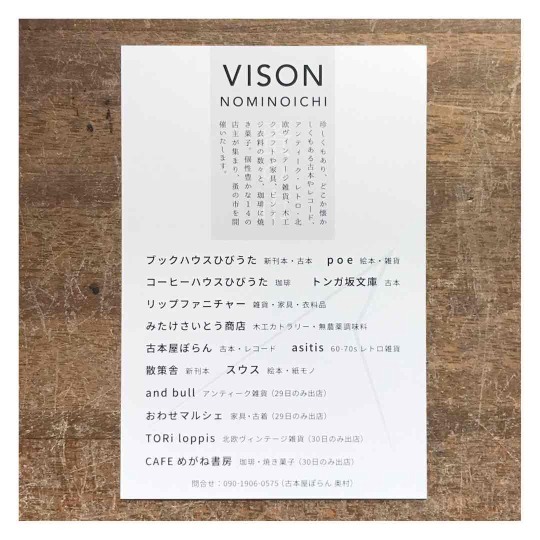 VISON
NOMINOICHI
珍しくもあり、どこか懐か
しくもある古本やレコード、
アンティーク・レトロ・北
欧ヴィンテージ雑貨、木工
クラフトや家具、ビンテー
ジ衣料の数々と、珈琲に焼
き菓子、個性豊かな14の
店主が集まり、蚤の市を開
催いたします。
ブックハウスひびうた 新刊本・古本 poe 絵本・雑貨
コーヒーハウスひびうた 珈琲 トンガ坂文庫 古本
リップファニチャー 雑貨・家具・衣料品
みたけさいとう商店 木工カトラリー・無農薬調味料
古本屋ぽらん 古本・レコード asitis 60-70sレトロ雑貨
散策舎 新刊本 スウス 絵本・紙モノ
and bull アンティーク雑貨（29日のみ出店）
おわせマルシェ 家具・古着（29日のみ出店）
TORi loppis 北欧ヴィンテージ雑貨（30日のみ出店）
CAFE めがね書房 珈琲・焼き菓子（30日のみ出店）
問合せ：090-1906-0575（古本屋ぽらん 奥村）